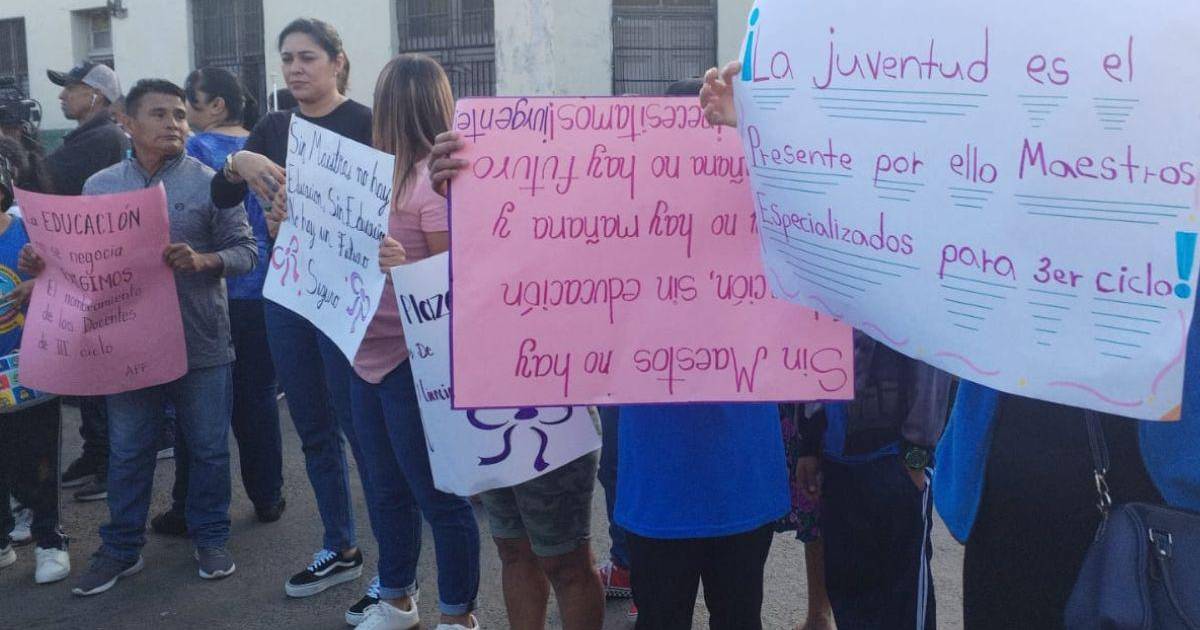 La EDUCACIÓN
no se negocia
EXIGIMOS
El nombramiento
de los Docentes
de III ciclo
AFF
Sin Maestros no hay
Educación, Sin Educación
No hay un Futuro
Seguro
Plaza
De
Sin Maestos no hay
ción, sin educación
y no hay mañana y
mañana no hay futuro
¡necesitamos!urgente
¡La juventud es el
Presente por ello Maestros
Especializados para 3er ciclo!